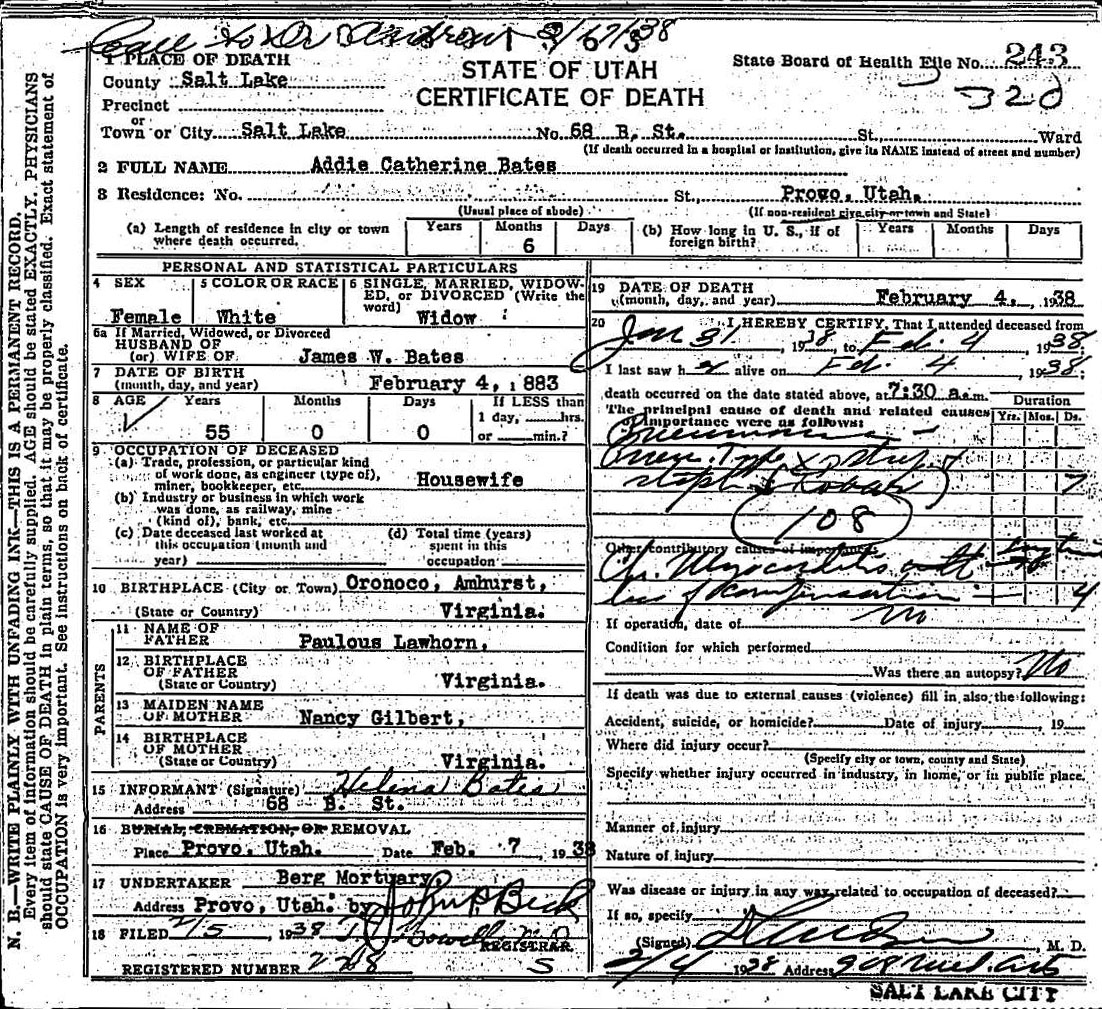 243
320
1 PLACE OF DEATH
STATE OF UTAH
CERTIFICATE OF DEATH
State Board of Health File No.
County Salt Lake
Precinct
or
Town or City Salt Lake No. 68 B. St. St. Ward
(If death occurred in a hospital or institution, give its NAME instead of street and number)
2 FULL NAME Addie Catherine Bates
3 Residence: No. St., Provo, Utah.
(Usual place of abode) (If non-resident give city or town and State)
(a) Length of residence in city or town where death occurred. Years Months 6 Days
(b) How long in U. S., if of foreign birth? Years Months Days
PERSONAL AND STATISTICAL PARTICULARS
4 SEX
Female
5 COLOR OR RACE
White
6 SINGLE, MARRIED, WIDOWED, or DIVORCED (Write the word)
Widow
6a If Married, Widowed, or Divorced
HUSBAND OF
(or) WIFE OF James W. Bates
7 DATE OF BIRTH
(month, day, and year) February 4, 1883
8 AGE Years Months Days If LESS than
1 day, hrs.
or min.?
55 0 0
9 OCCUPATION OF DECEASED
(a) Trade, profession, or particular kind
of work done, as engineer (type of),
miner, bookkeeper, etc. Housewife
(b) Industry or business in which work
was done, as railway, mine
(kind of), bank, etc.
(c) Date deceased last worked at
this occupation (month and
year)
(d) Total time (years)
spent in this
occupation
10 BIRTHPLACE (City or Town) Oronoco, Amhurst,
(State or Country) Virginia.
PARENTS
11 NAME OF
FATHER Paulous Lawhorn,
12 BIRTHPLACE
OF FATHER
(State or Country) Virginia.
13 MAIDEN NAME
OF MOTHER Nancy Gilbert,
14 BIRTHPLACE
OF MOTHER
(State or Country) Virginia.
15 INFORMANT (Signature) Helena Bates
Address 68 B. St.
16 BURIAL, CREMATION, OR REMOVAL
Place Provo, Utah. Date Feb. 7, 1938
17 UNDERTAKER Berg Mortuary
Address Provo, Utah. by John P. Beck
18 FILED 2/5, 1938
REGISTRAR.
REGISTERED NUMBER 228
19 DATE OF DEATH
(month, day, and year) February 4, 1938
20 I HEREBY CERTIFY, That I attended deceased from
Jan 31, 1938, to Feb. 4, 1938
I last saw h alive on Feb. 4, 1938;
death occurred on the date stated above, at 7:30 a.m.
The principal cause of death and related causes
of importance were as follows:
Duration
Yrs. Mos. Ds.
Pneumonia
7
108
Other contributory causes of importance:
Ch. Myocarditis with
loss of compensation 4
If operation, date of No
Condition for which performed
Was there an autopsy? No
If death was due to external causes (violence) fill in also the following:
Accident, suicide, or homicide? Date of injury 19
Where did injury occur?
(Specify city or town, county and State)
Specify whether injury occurred in industry, in home, or in public place.
Manner of injury
Nature of injury
Was disease or injury in any way related to occupation of deceased?
If so, specify
(Signed) , M. D.
2/4 1938 Address 908 Med. Arts
SALT LAKE CITY
N. B.—WRITE PLAINLY WITH UNFADING INK—THIS IS A PERMANENT RECORD.
Every item of information should be carefully supplied. AGE should be stated EXACTLY. PHYSICIANS
should state CAUSE OF DEATH in plain terms, so that it may be properly classified. Exact statement of
OCCUPATION is very important. See instructions on back of certificate.